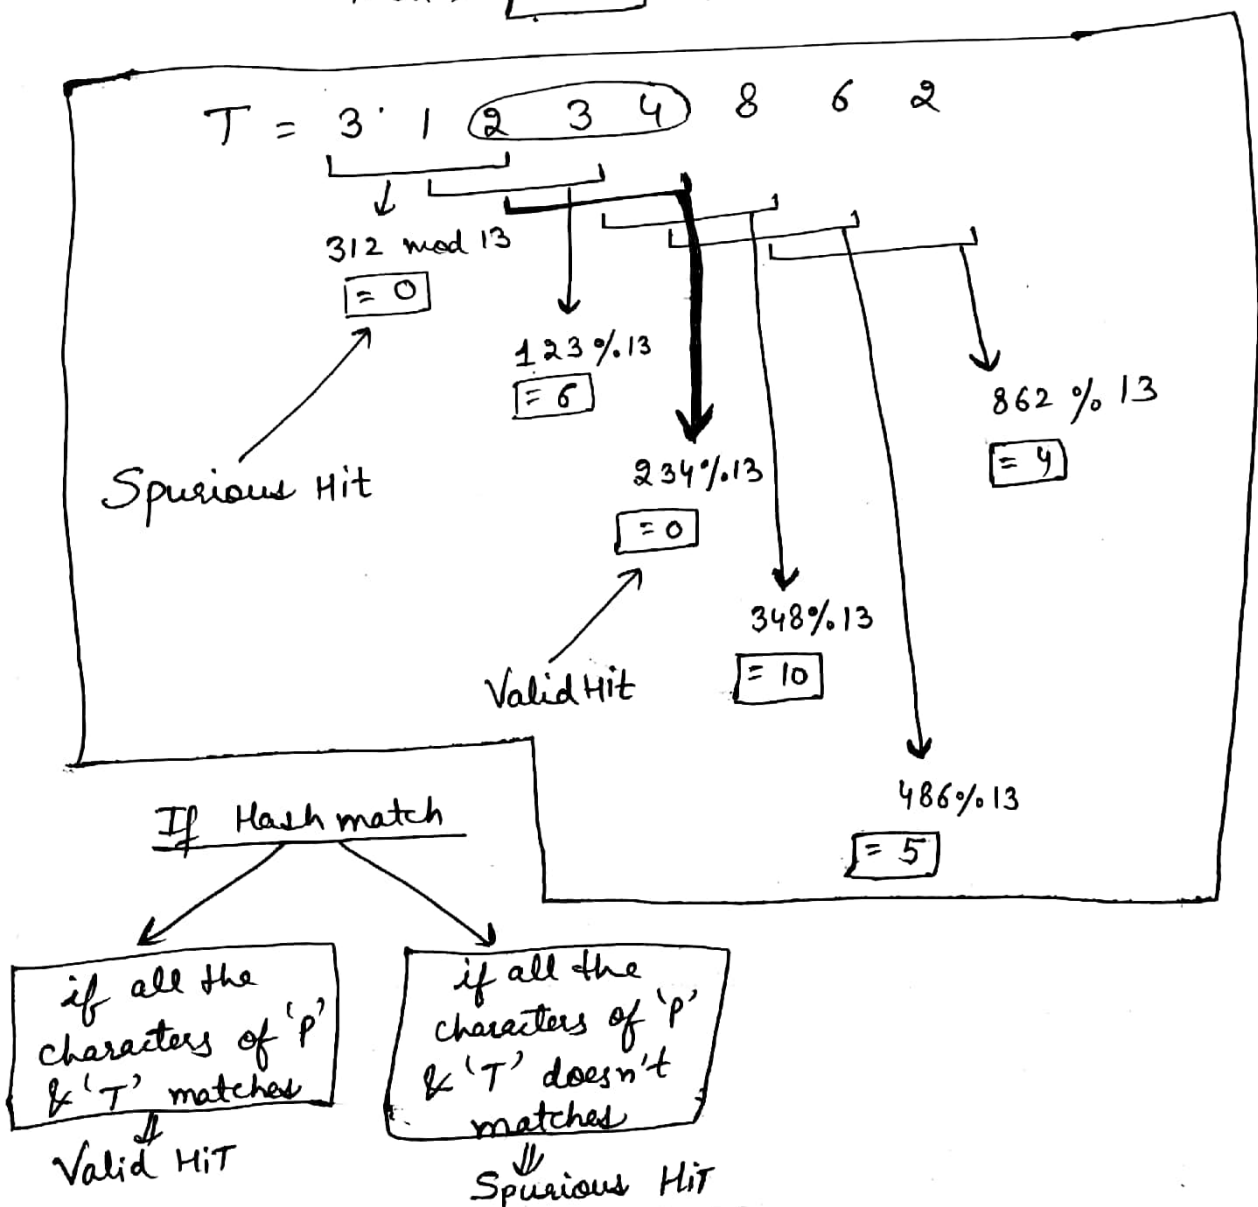 T = 3 1 2 3 4 8 6 2
312 mod 13
= 0
123%.13
= 6
862 % 13
= 4
234%.13
= 0
Spurious Hit
348%.13
= 10
Valid Hit
486%13
= 5
If Hash match
if all the
characters of 'P'
& 'T' matches
Valid HiT
if all the
characters of 'P'
& 'T' doesn't
matches
Spurious HiT